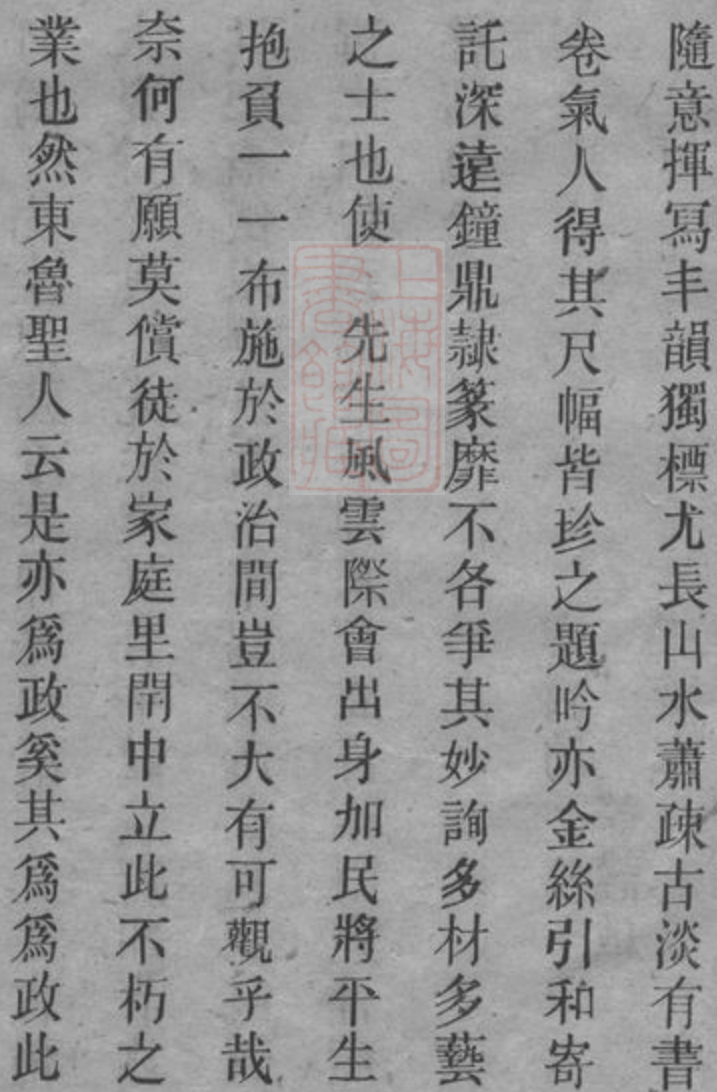 隨意揮寫丰韻獨標尤長山水蕭疎古淡有書
卷氣人得其尺幅皆珍之題吟亦金絲引和寄
託深遠鐘鼎隸篆靡不各爭其妙詢多材多藝
之士也使　先生風雲際會出身加民將平生
抱負一一布施於政治間豈不大有可觀乎哉
奈何有願莫償徒於家庭里閈中立此不朽之
業也然東魯聖人云是亦爲政奚其爲爲政此
上海圖書館藏